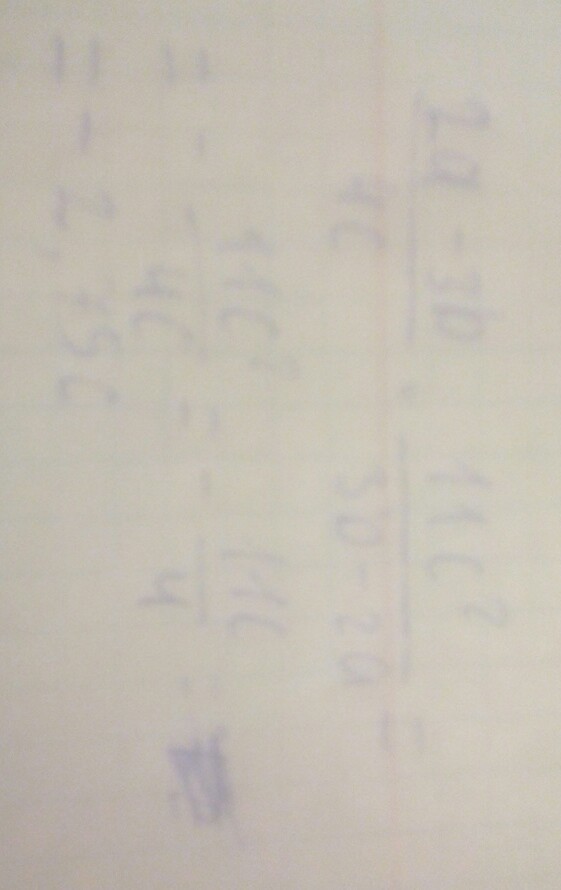 (2a - 3b)/(4c) · (11c²)/(3b - 2a) =
= - (11c²)/(4c) = - (11c)/4 =
= - 2,75c